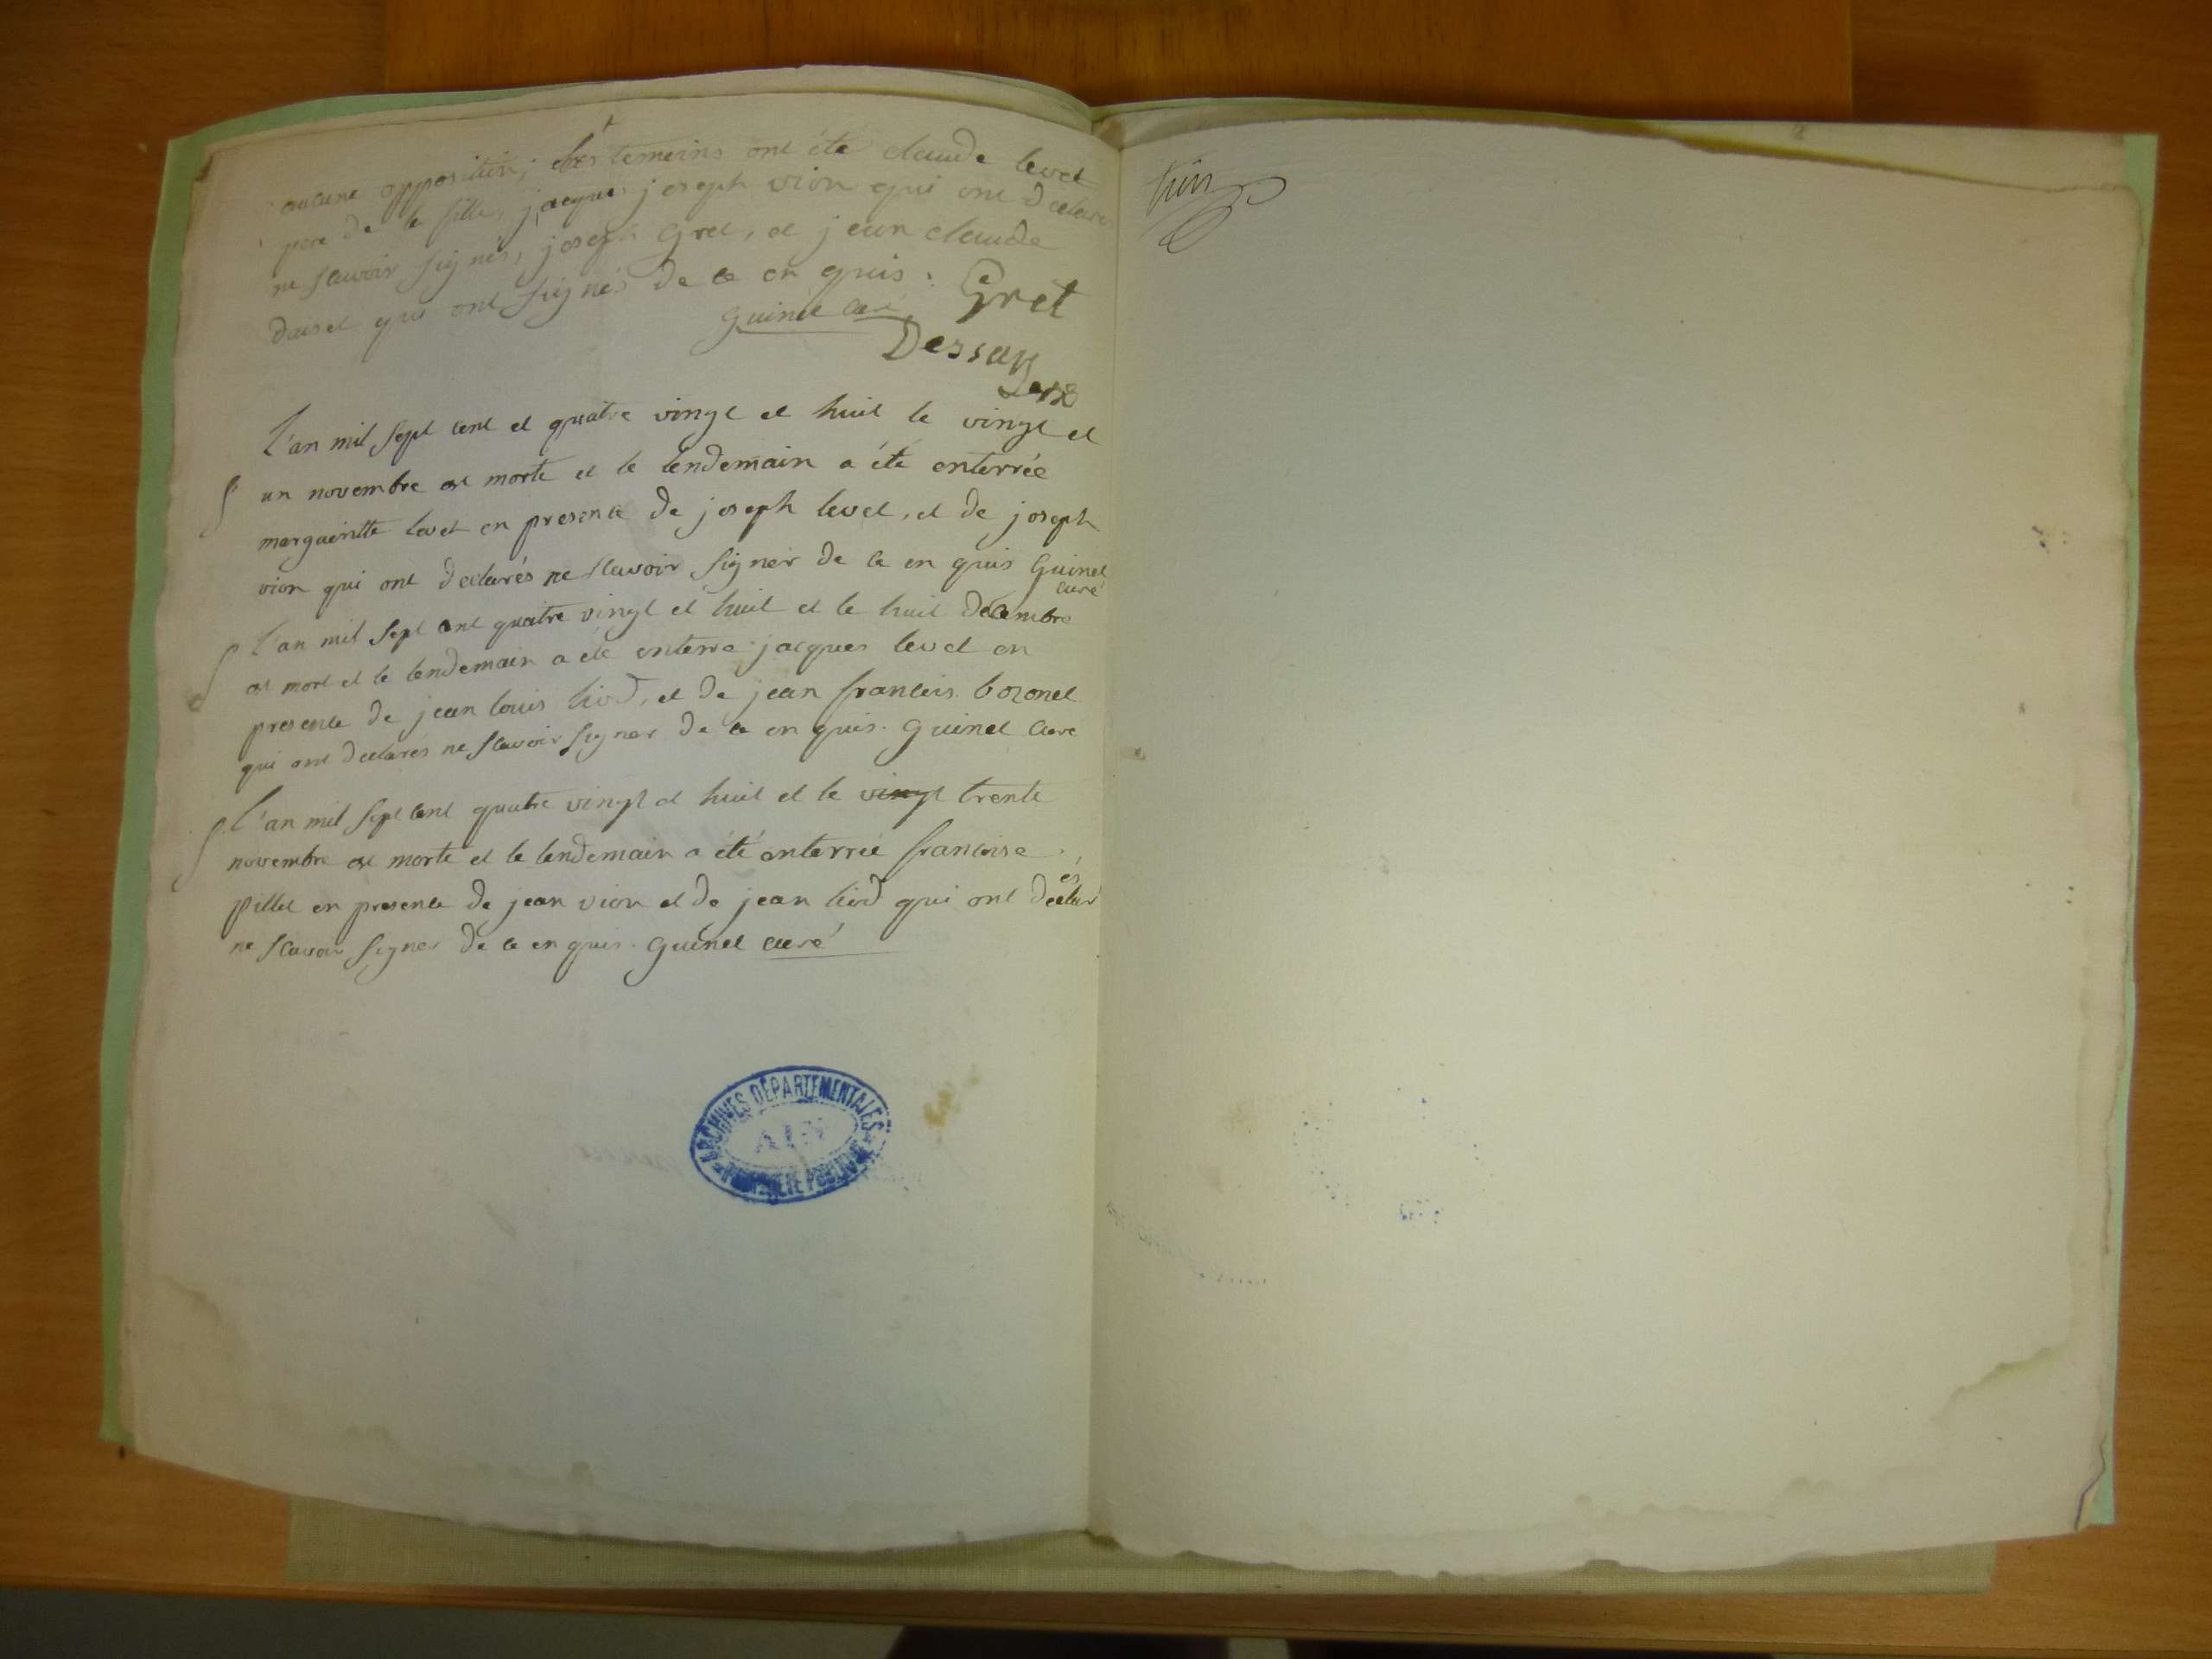 aucune opposition; les temoins ont été claude levet
pere de la fille, jacques joseph vion qui ont declarés
ne scavoir signés, joseph Gret, et jean claude
qui ont signés de ce en quis. Gret
Guinet curé
L'an mil sept cent et quatre vingt et huit le vingt et
un novembre est morte et le lendemain a été enterrée
margueritte levet en presence de joseph levet, et de joseph
vion qui ont declarés ne scavoir signer de ce en quis Guinet
curé
L'an mil sept cent quatre vingt et huit et le huit decembre
est mort et le lendemain a été enterré jacques levet en
presence de jean louis liod, et de jean francois bozonet
qui ont declarés ne scavoir signer de ce en quis. Guinet curé
L'an mil sept cent quatre vingt et huit et le vingt trente
novembre est morte et le lendemain a été enterrée francoise
pillet en presence de jean vion et de jean liod qui ont declarés
ne scavoir signer de ce en quis. Guinet curé
ARCHIVES DÉPARTEMENTALES
AIN